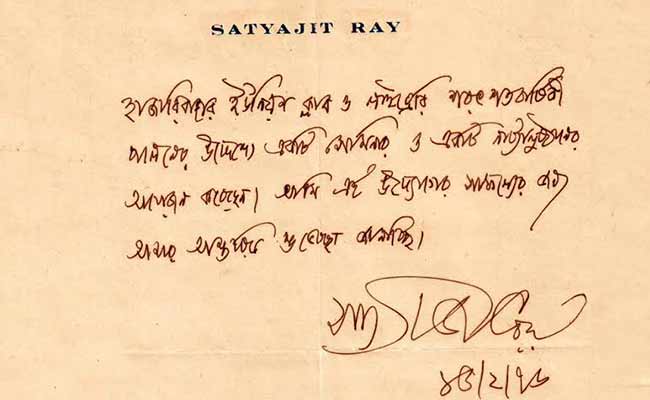 SATYAJIT RAY
হাজারিবাগের ইউনিয়ন ক্লাব ও লাইব্রেরি শরৎ শতবার্ষিকী
পালনের উদ্দেশ্যে একটি সেমিনার ও একটি নাট্যানুষ্ঠানের
আয়োজন করেছেন। আমি এই উদ্যোগের সাফল্যের জন্য
আমার আন্তরিক শুভেচ্ছা জানাচ্ছি।
সত্যজিৎ রায়